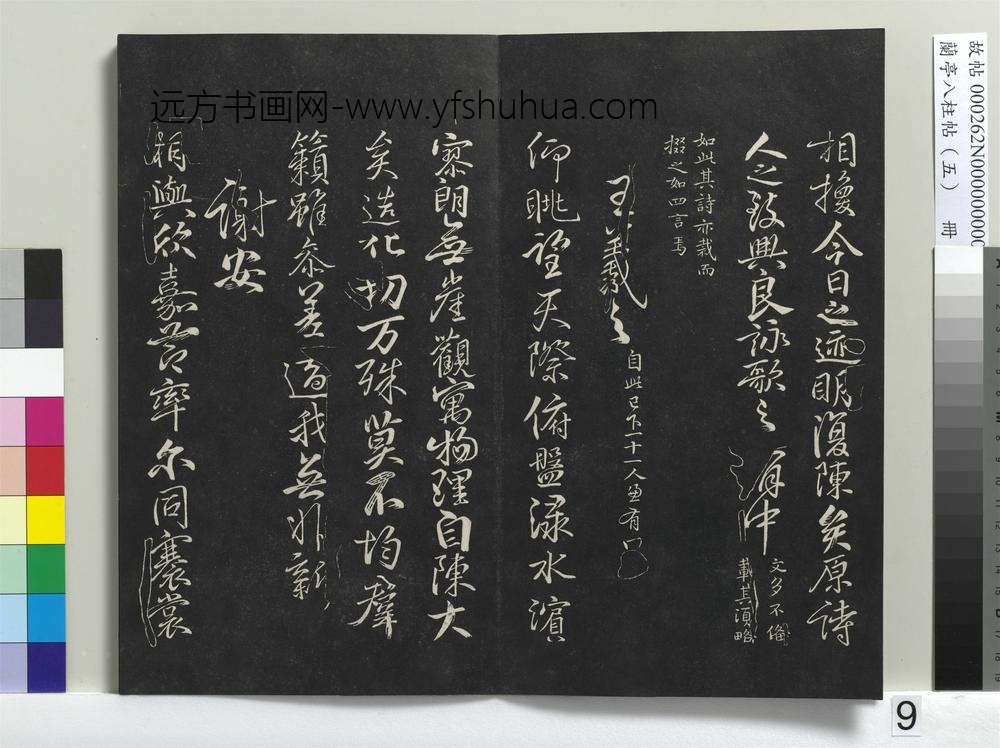 远方书画网-www.yfshuhua.com
相換今日之迹明復陳矣原詩
人之致興良詠歌之有由
文多不備
載其項略
如此其詩亦裁而
掇之如四言焉
王羲之 自此已下一十一人並有
仰眺望天際俯盤淥水濱
寥朗無崖觀寓物理自陳大
矣造化切万殊莫不均羣
籟雖參差適我無非新
謝安
相與欣嘉莭率尔同褰裳
故帖 000262N000000000
蘭亭八柱帖（五） 冊
9